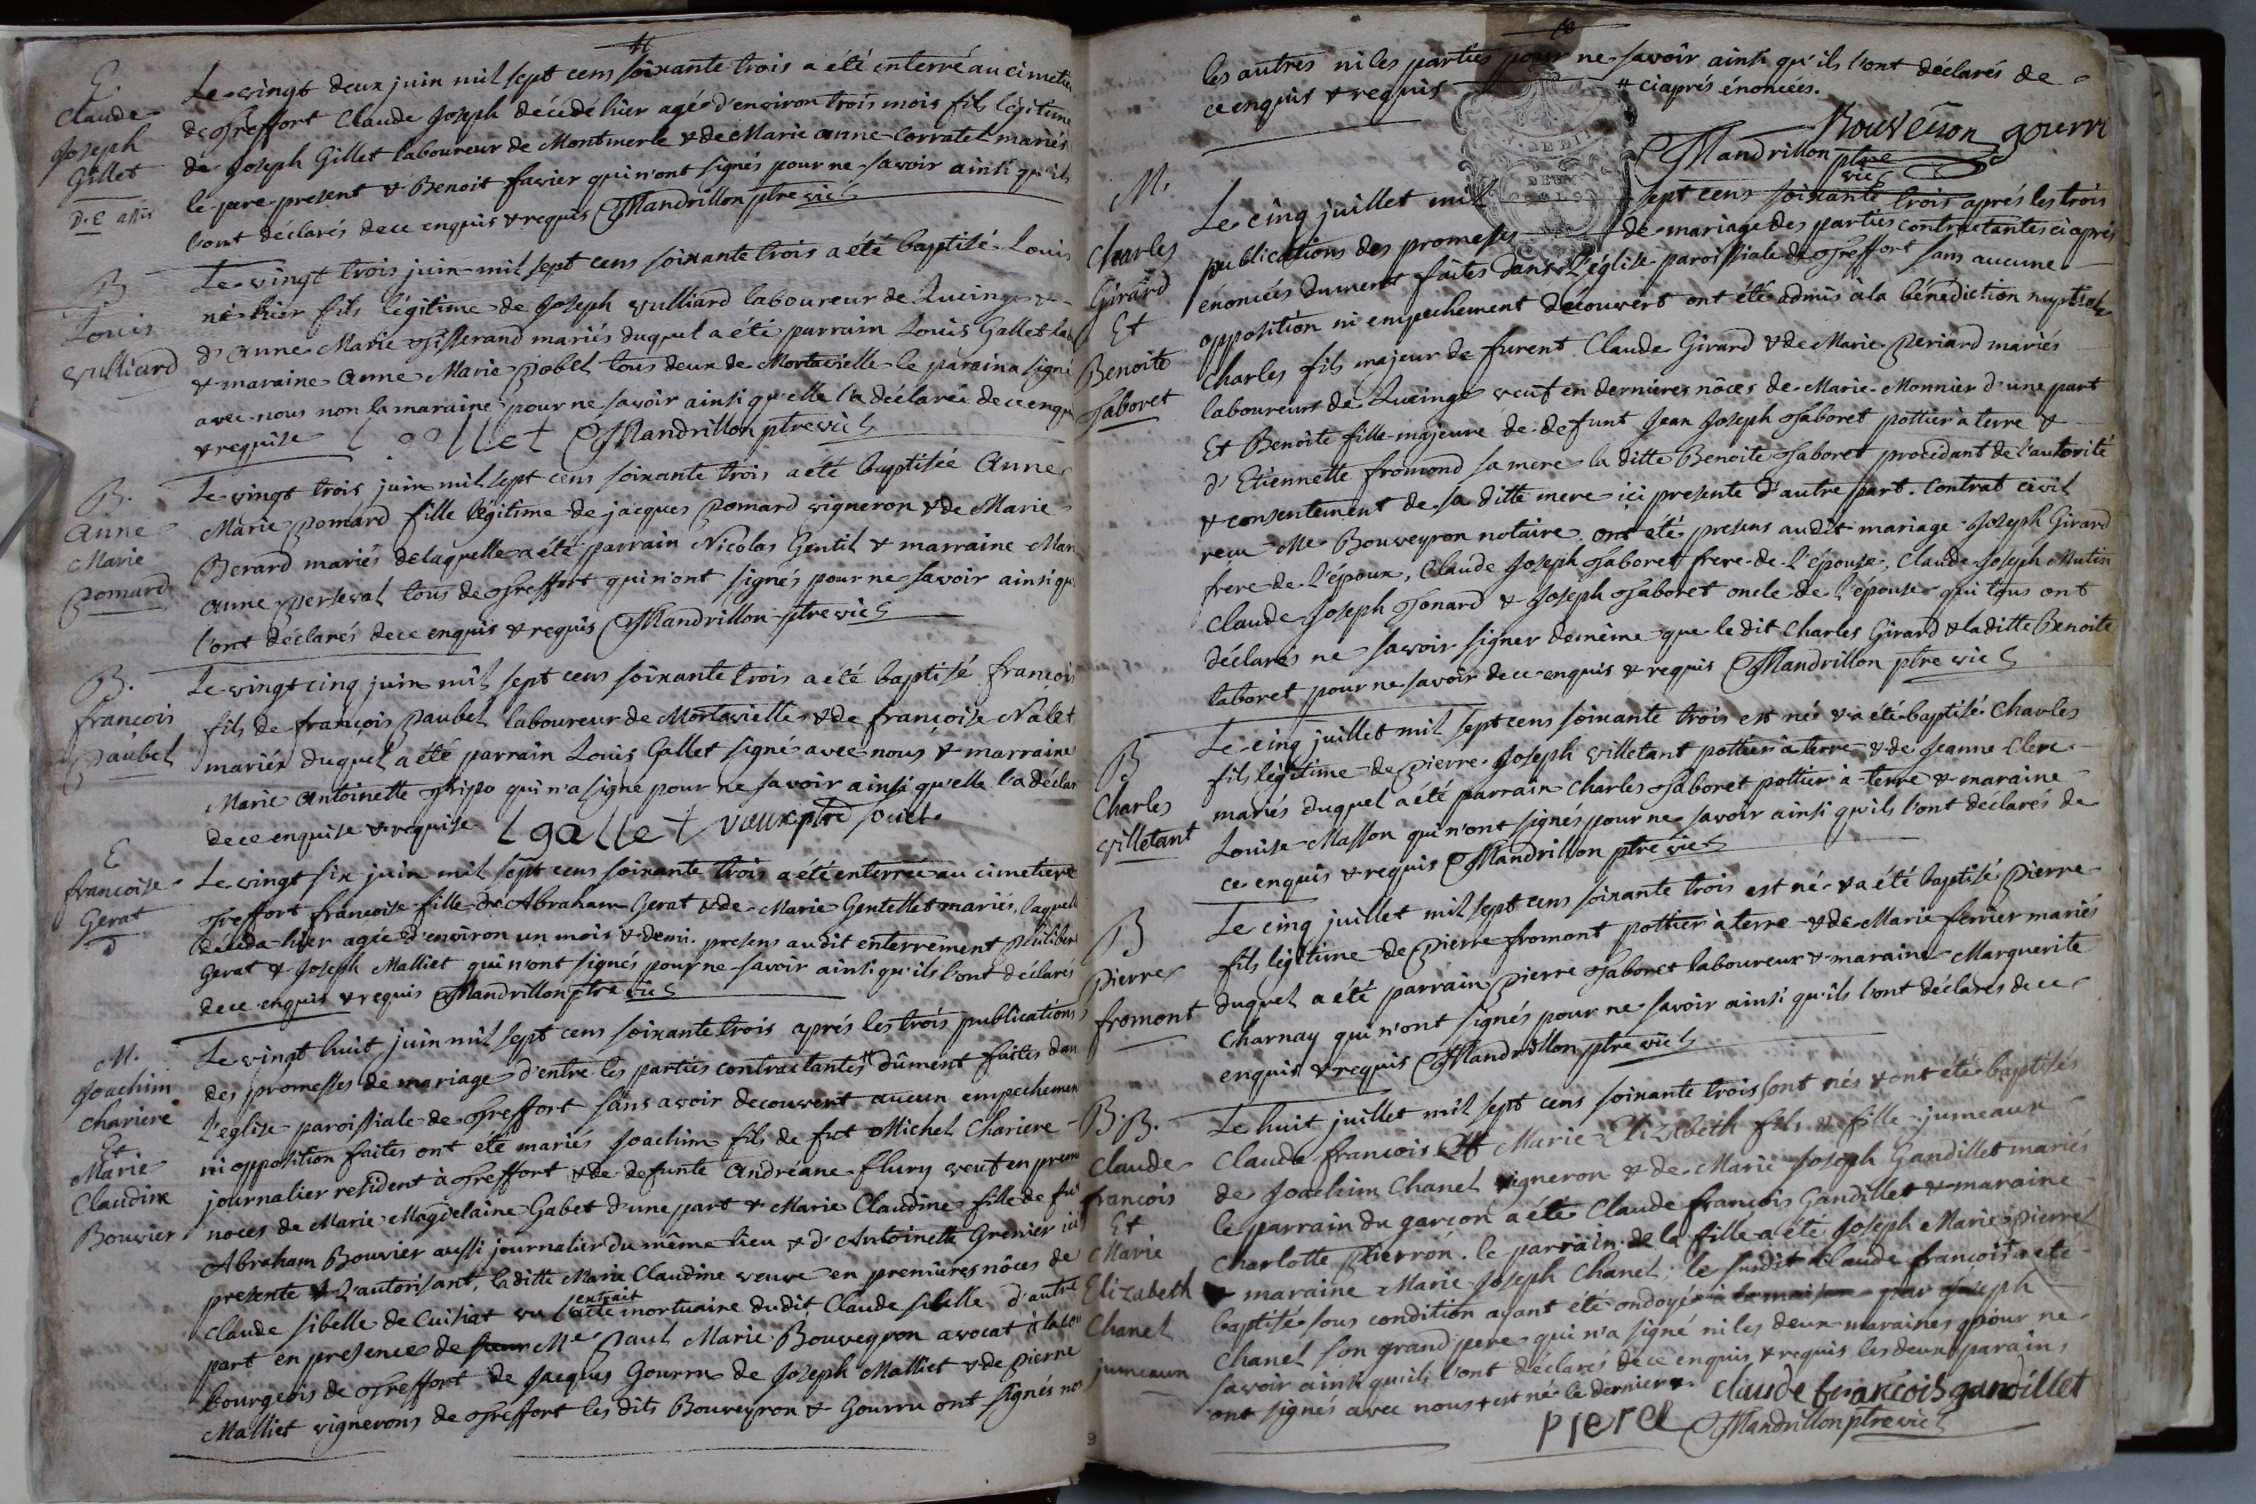 E.
Claude
Joseph
Gillet
Le vingt deux juin mil sept cens soixante trois a été enterré au cimetie
de Treffort Claude Joseph décédé hier agé d'environ trois mois fils légitime
de Joseph Gillet laboureur de Montmerle & de Marie anne Corratel mariés
le pere present & Benoit favier qui n'ont signés pour ne savoir ainsi qu'ils
l'ont déclarés de ce enquis & requis Mandrillon ptre vic
B
Louis
vulliard
Le vingt trois juin mil sept cens soixante trois a été baptisé Louis
né hier fils légitime de Joseph vulliard laboureur de Lucinge &
d'anne Marie Tisserand mariés duquel a été parrain Louis Gallet lab
& maraine anne Marie pobel tous deux de Mortavielle le paraina signé
avec nous non la maraine pour ne savoir ainsi qu'elle l'a déclaré de ce enqu
& requise L gallet Mandrillon ptre vic
B.
anne
Marie
pomard
Le vingt trois juin mil sept cens soixante trois a été baptisée anne
Marie pomard fille légitime de jacques pomard vigneron & de Marie
Berard mariés de laquelle a été parrain Nicolas Gentil & marraine Mar
anne perseval tous de Treffort qui n'ont signés pour ne savoir ainsi qu
l'ont déclarés de ce enquis & requis Mandrillon ptre vic
B.
francois
paubel
Le vingt cinq juin mil sept cens soixante trois a été baptisé francois
fils de françois paubel laboureur de Mortavielle & de françoise Nalet
mariés duquel a été parrain Louis Gallet signé avec nous & marraine
Marie antoinette pripo qui n'a signé pour ne savoir ainsi qu'elle l'a déclar
de ce enquise & requise L gallet vaux ptre
E
francoise
Gerat
Le vingt six juin mil sept cens soixante trois a été enterrée au cimetiere
Treffort francoise fille de Abraham Gerat & de Marie Gentellet mariés laquel
décéda hier agée d'environ un mois & demi. presens au dit enterrement philiber
Gerat & Joseph Malliet qui n'ont signés pour ne savoir ainsi qu'ils l'ont déclarés
de ce enquis & requis Mandrillon ptre vic
M.
Joachim
Chariere
Et
Marie
Claudine
Bouvier
Le vingt huit juin mil sept cens soixante trois aprés les trois publications
des promesses de mariage d'entre les parties contractantes # dûment faites dan
l'eglise paroissiale de Treffort sans avoir decouvert aucun empechemen
ni opposition faites ont été mariés Joachim fils de fut Michel Chariere
journalier resident à Treffort & de defunte andreane flury veuf en prem
noces de Marie Magdelaine Gabet d'une part & Marie Claudine fille de fut
Abraham Bouvier aussi journalier du même lieu & d'Antoinette Grenier ici
presente & l'autorisant, la ditte Marie Claudine veuve en premieres nôces de
Claude sibelle de Cuisiat vu l'extrait mortuaire du dit Claude sibelle d'autre
part en presence de Me paul Marie Bouveyron avocat à la cour
bourgeois de Treffort de Jacques Gourru de Joseph Malliet & de pierre
Malliet vignerons de Treffort les dits Bouveyron & Gourru ont signés non
les autres ni les parties pour ne savoir ainsi qu'ils l'ont déclarés de
ce enquis & requis # ci aprés énoncées.
Bouveiron gourru
Mandrillon ptre vic
M.
Charles
Girard
Et
Benoite
Taboret
Le cinq juillet mil sept cens soixante trois aprés les trois
publications des promesses de mariage des parties contractantes ci aprés
énoncées dument faites dans l'église paroissiale de Treffort sans aucune
opposition ni empechement découvert ont été admis à la bénédiction nuptiale
Charles fils majeur de furent Claude Girard & de Marie periard mariés
laboureurs de Lucinge veuf en dernieres nôces de Marie Monnier d'une part
Et Benoite fille majeure de defunt Jean Joseph Taboret pottier à terre &
d'Etiennette fromond sa mere la ditte Benoite Taboret procédant de l'autorité
& consentement de sa ditte mere ici presente d'autre part. Contrat civil
reçu Me Bouveyron notaire ont été presens au dit mariage Joseph Girard
frere de l'époux, Claude Joseph Taboret frere de l'épouse, Claude Joseph Mutin
Claude Joseph Tonard & Joseph Taboret oncle de l'épouse qui tous ont
déclarés ne savoir signer de même que le dit Charles Girard & la ditte Benoite
taboret pour ne savoir de ce enquis & requis Mandrillon ptre vic
B
Charles
villetant
Le cinq juillet mil sept cens soixante trois est né & a été baptisé Charles
fils légitime de pierre Joseph villetant pottier à terre & de Jeanne Clerc
mariés duquel a été parrain Charles Taboret pottier à terre & maraine
Louise Masson qui n'ont signés pour ne savoir ainsi qu'ils l'ont déclarés de
ce enquis & requis Mandrillon ptre vic
B
pierre
fromont
Le cinq juillet mil sept cens soixante trois est né & a été baptisé pierre
fils légitime de pierre fromont pottier à terre & de Marie ferrier mariés
duquel a été parrain pierre Taboret laboureur & maraine Marguerite
Charnay qui n'ont signés pour ne savoir ainsi qu'ils l'ont déclarés de ce
enquis & requis Mandrillon ptre vic
B.B.
Claude
francois
Et
Marie
Elizabeth
Chanel
jumeaux
Le huit juillet mil sept cens soixante trois sont nés & ont été baptisés
Claude francois Et Marie Elizabeth fils & fille jumeaux
de Joachim Chanel vigneron & de Marie Joseph Gandillet mariés
le parrain du garçon a été Claude françois Gandillet & maraine
Charlotte pierron. le parrain de la fille a été Joseph Marie pierrel
& maraine Marie Joseph Chanel; le susdit Claude francois + a été
baptisé sous condition ayant été ondoyé à la maison par Joseph
Chanel son grand pere qui n'a signé ni les deux maraines pour ne
savoir ainsi qu'ils l'ont déclarés de ce enquis & requis les deux parains
ont signés avec nous + est né le dernier &. claude francois gandillet
pierel Mandrillon ptre vic